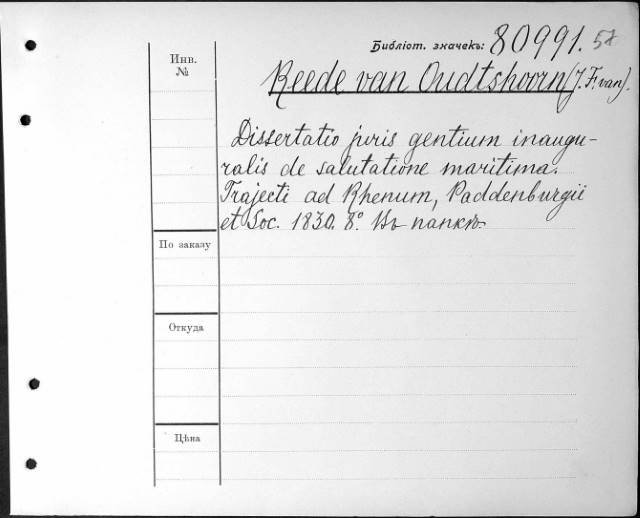 Библіот. значекъ: 80991.
Reede van Oudtshoorn (J. F. van).
Инв.
№
Dissertatio juris gentium inaugu-
ralis de salutatione maritima.
Trajecti ad Rhenum, Paddenburgii
et Soc. 1830. 8º. Въ папкѣ
По заказу
Откуда
Цѣна